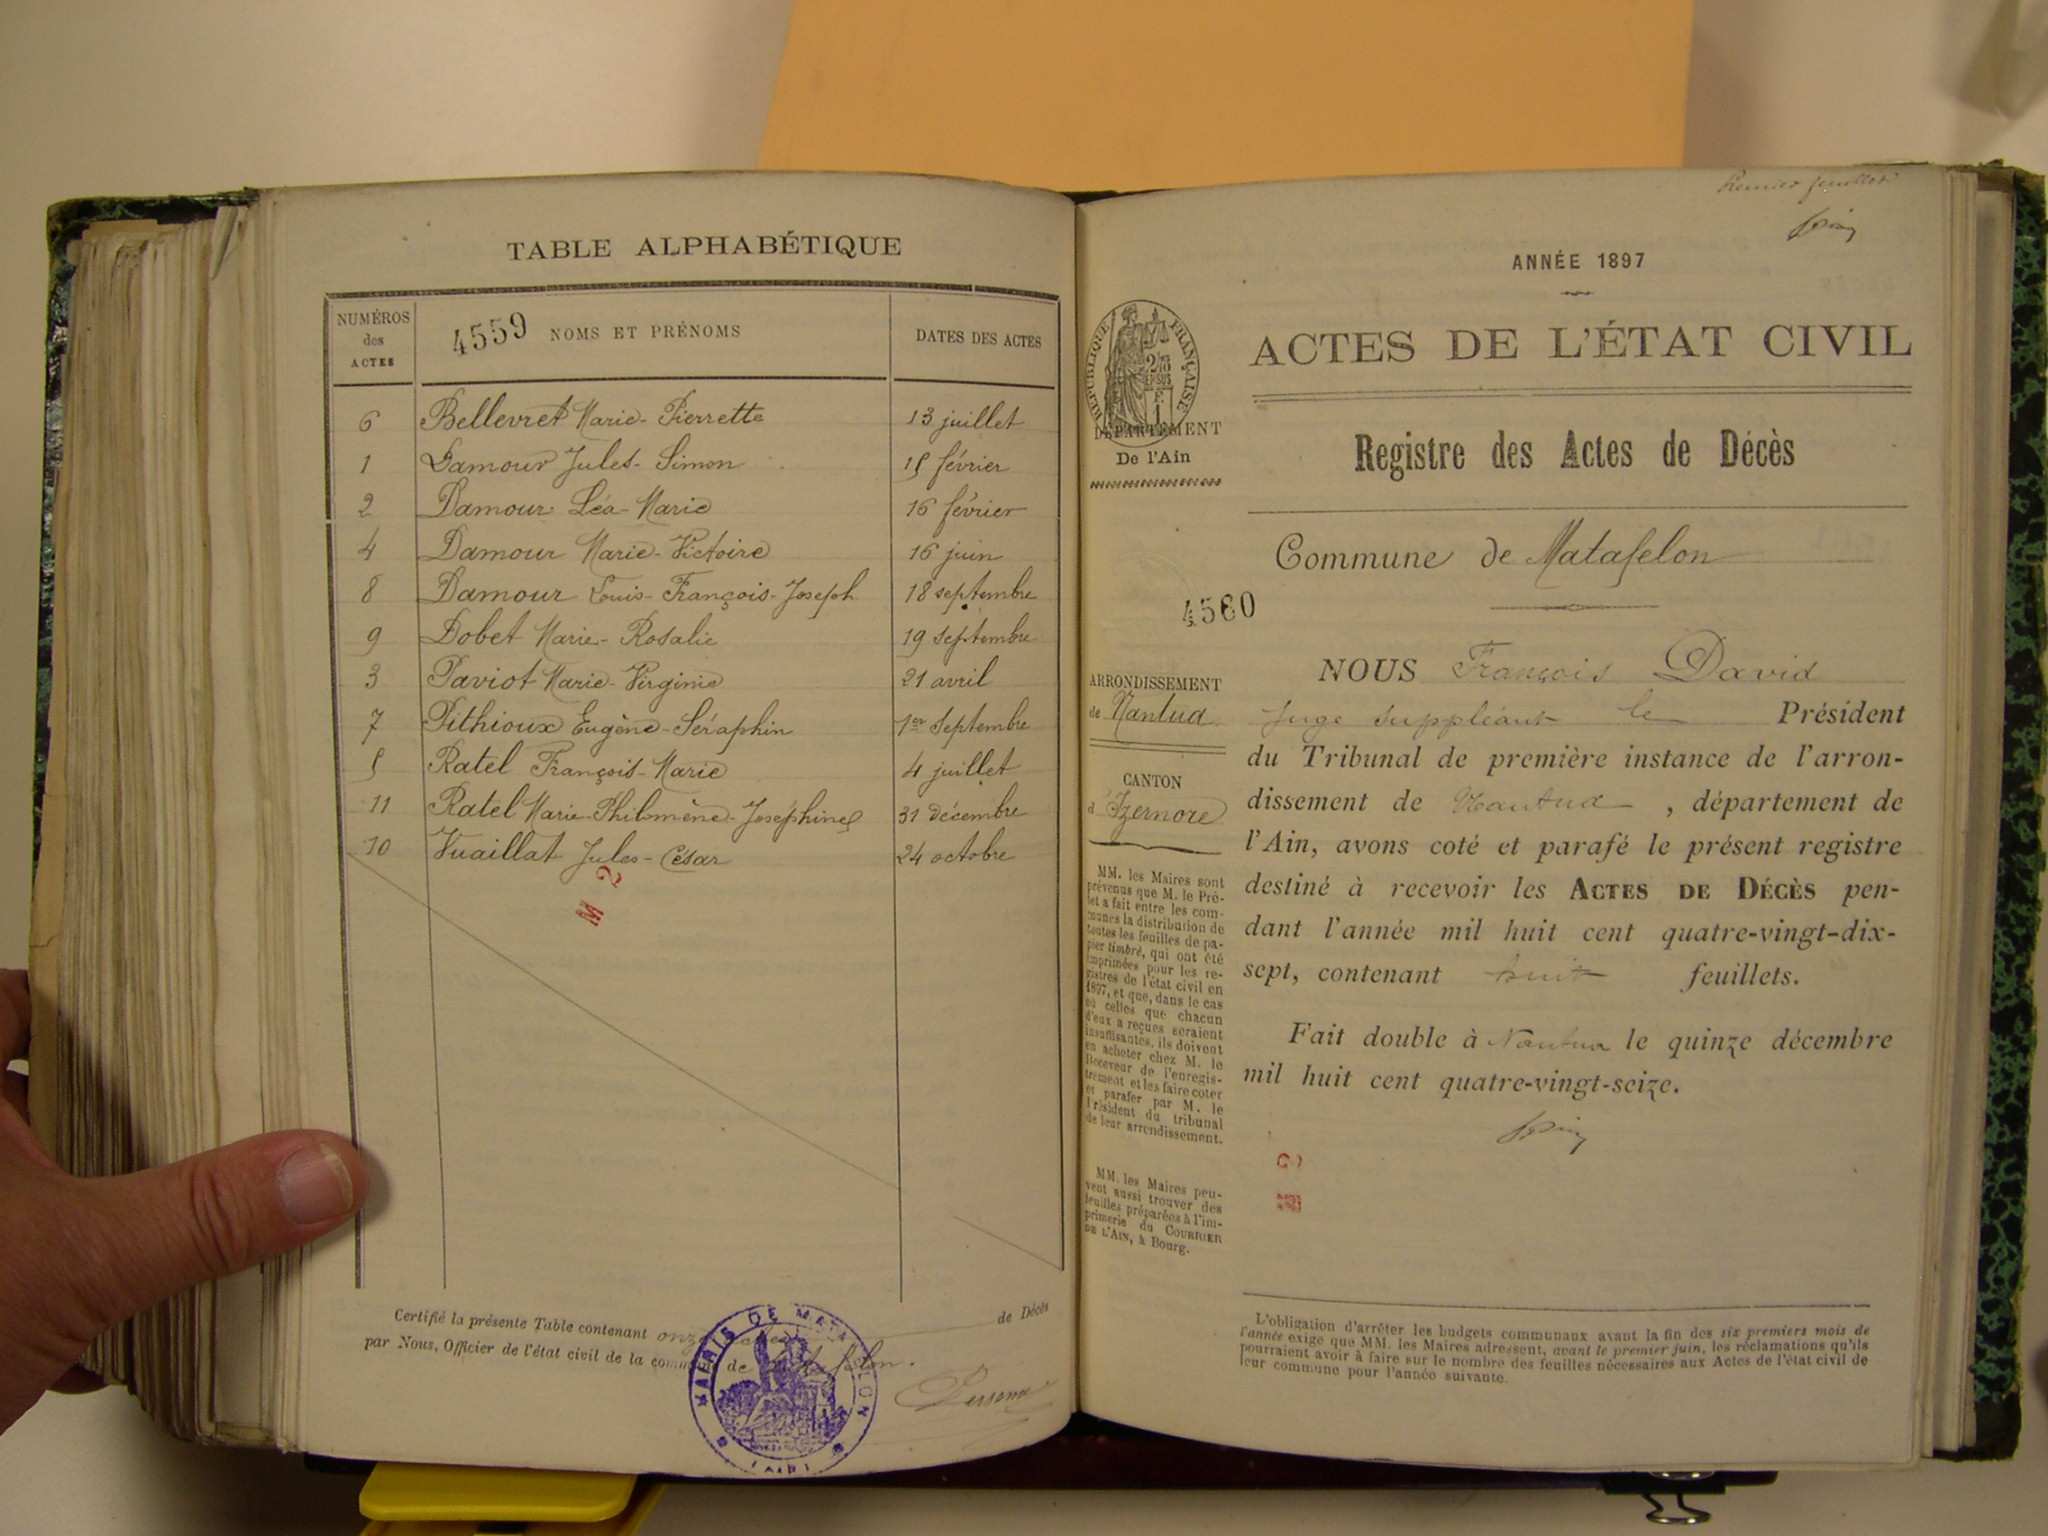 TABLE ALPHABÉTIQUE
NUMÉROS
des
ACTES
4559 NOMS ET PRÉNOMS
DATES DES ACTES
6 Bellevret Marie-Pierrette 13 juillet
1 Damour Jules-Simon 15 février
2 Damour Léa-Marie 16 février
4 Damour Marie-Victoire 16 juin
8 Damour Louis-François-Joseph 18 septembre
9 Dobet Marie-Rosalie 19 septembre
3 Paviot Marie-Virginie 21 avril
7 Pithioux Eugène-Séraphin 1er septembre
5 Ratel François-Marie 4 juillet
11 Ratel Marie-Philomène-Joséphine 31 décembre
10 Vuaillat Jules-César 24 octobre
M 2
Certifié la présente Table contenant onze de Décès
par Nous, Officier de l'état civil de la commune de Matafelon.
MAIRIE DE MATAFELON
(AIN)
Premier feuillet
ANNÉE 1897
RÉPUBLIQUE FRANÇAISE
ACTES DE L'ÉTAT CIVIL
DÉPARTEMENT
De l'Ain
Registre des Actes de Décès
Commune de Matafelon
4560
ARRONDISSEMENT
de Nantua
CANTON
d'Izernore
MM. les Maires sont
prévenus que M. le Pré-
fet a fait entre les com-
munes la distribution de
toutes les feuilles de pa-
pier timbré, qui ont été
imprimées pour les re-
gistres de l'état civil en
1897, et que, dans le cas
où celles que chacun
d'eux a reçues seraient
insuffisantes, ils doivent
en acheter chez M. le
Receveur de l'enregis-
trement et les faire coter
et parafer par M. le
Président du tribunal
de leur arrondissement.
MM. les Maires peu-
vent aussi trouver des
feuilles préparées à l'im-
primerie du COURRIER
DE L'AIN, à Bourg.
NOUS François David
juge suppléant le Président
du Tribunal de première instance de l'arron-
dissement de Nantua, département de
l'Ain, avons coté et parafé le présent registre
destiné à recevoir les ACTES DE DÉCÈS pen-
dant l'année mil huit cent quatre-vingt-dix-
sept, contenant huit feuillets.
Fait double à Nantua le quinze décembre
mil huit cent quatre-vingt-seize.
L'obligation d'arrêter les budgets communaux avant la fin des six premiers mois de
l'année exige que MM. les Maires adressent, avant le premier juin, les réclamations qu'ils
pourraient avoir à faire sur le nombre des feuilles nécessaires aux Actes de l'état civil de
leur commune pour l'année suivante.